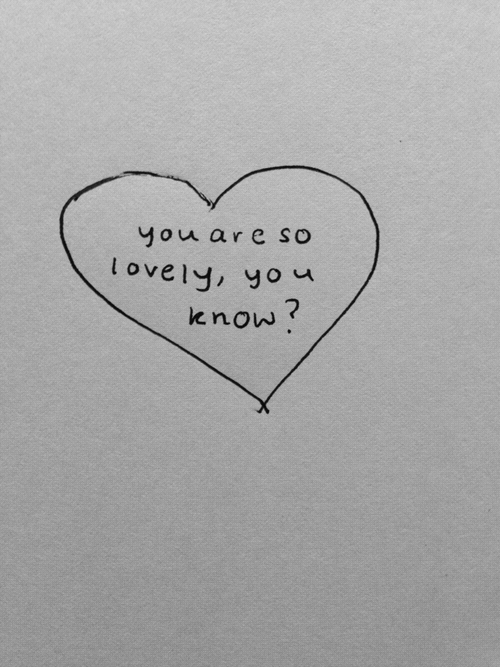 you are so
lovely, you
know?